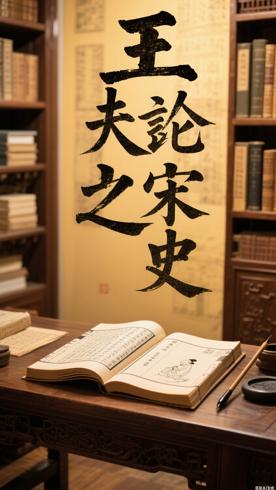 王夫之
論宋史